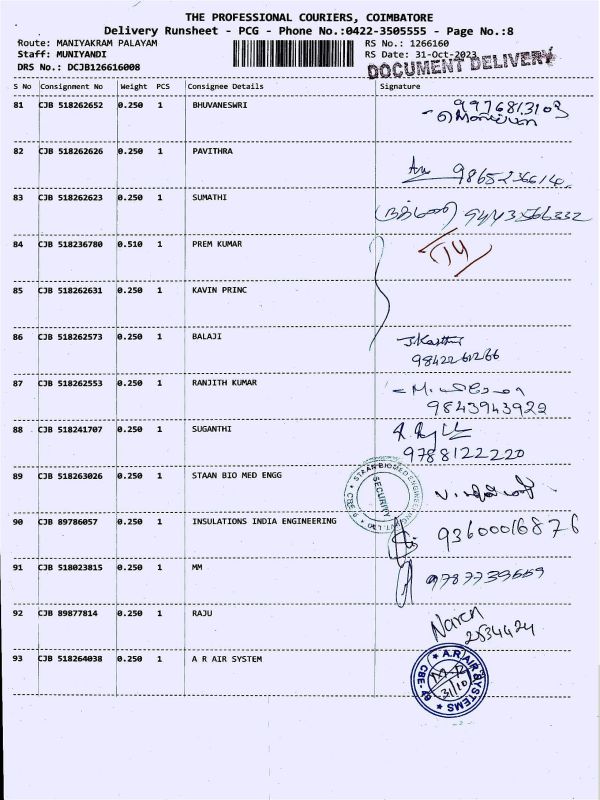 THE PROFESSIONAL COURIERS, COIMBATORE
Delivery Runsheet - PCG - Phone No.:0422-3505555 - Page No.:8
Route: MANIYAKRAM PALAYAM
RS No.: 1266160
Staff: MUNIYANDI
RS Date: 31-Oct-2023
DRS No.: DCJB126616008
DOCUMENT DELIVERY
S No Consignment No Weight PCS Consignee Details Signature
81 CJB 518262652 0.250 1 BHUVANESWRI
9976813103
82 CJB 518262626 0.250 1 PAVITHRA
9865236614
83 CJB 518262623 0.250 1 SUMATHI
9443566332
84 CJB 518236780 0.510 1 PREM KUMAR
85 CJB 518262631 0.250 1 KAVIN PRINC
86 CJB 518262573 0.250 1 BALAJI
J.Karthi
9842261266
87 CJB 518262553 0.250 1 RANJITH KUMAR
9843943922
88 CJB 518241707 0.250 1 SUGANTHI
9788122220
89 CJB 518263026 0.250 1 STAAN BIO MED ENGG
STAAN BIOMED ENGINEERING PVT. LTD
SECURITY
90 CJB 89786057 0.250 1 INSULATIONS INDIA ENGINEERING
9360016876
91 CJB 518023815 0.250 1 MM
9787739669
92 CJB 89877814 0.250 1 RAJU
Naren
2534424
93 CJB 518264038 0.250 1 A R AIR SYSTEM
A.R.AIR SYSTEMS
CBE-49
31/10